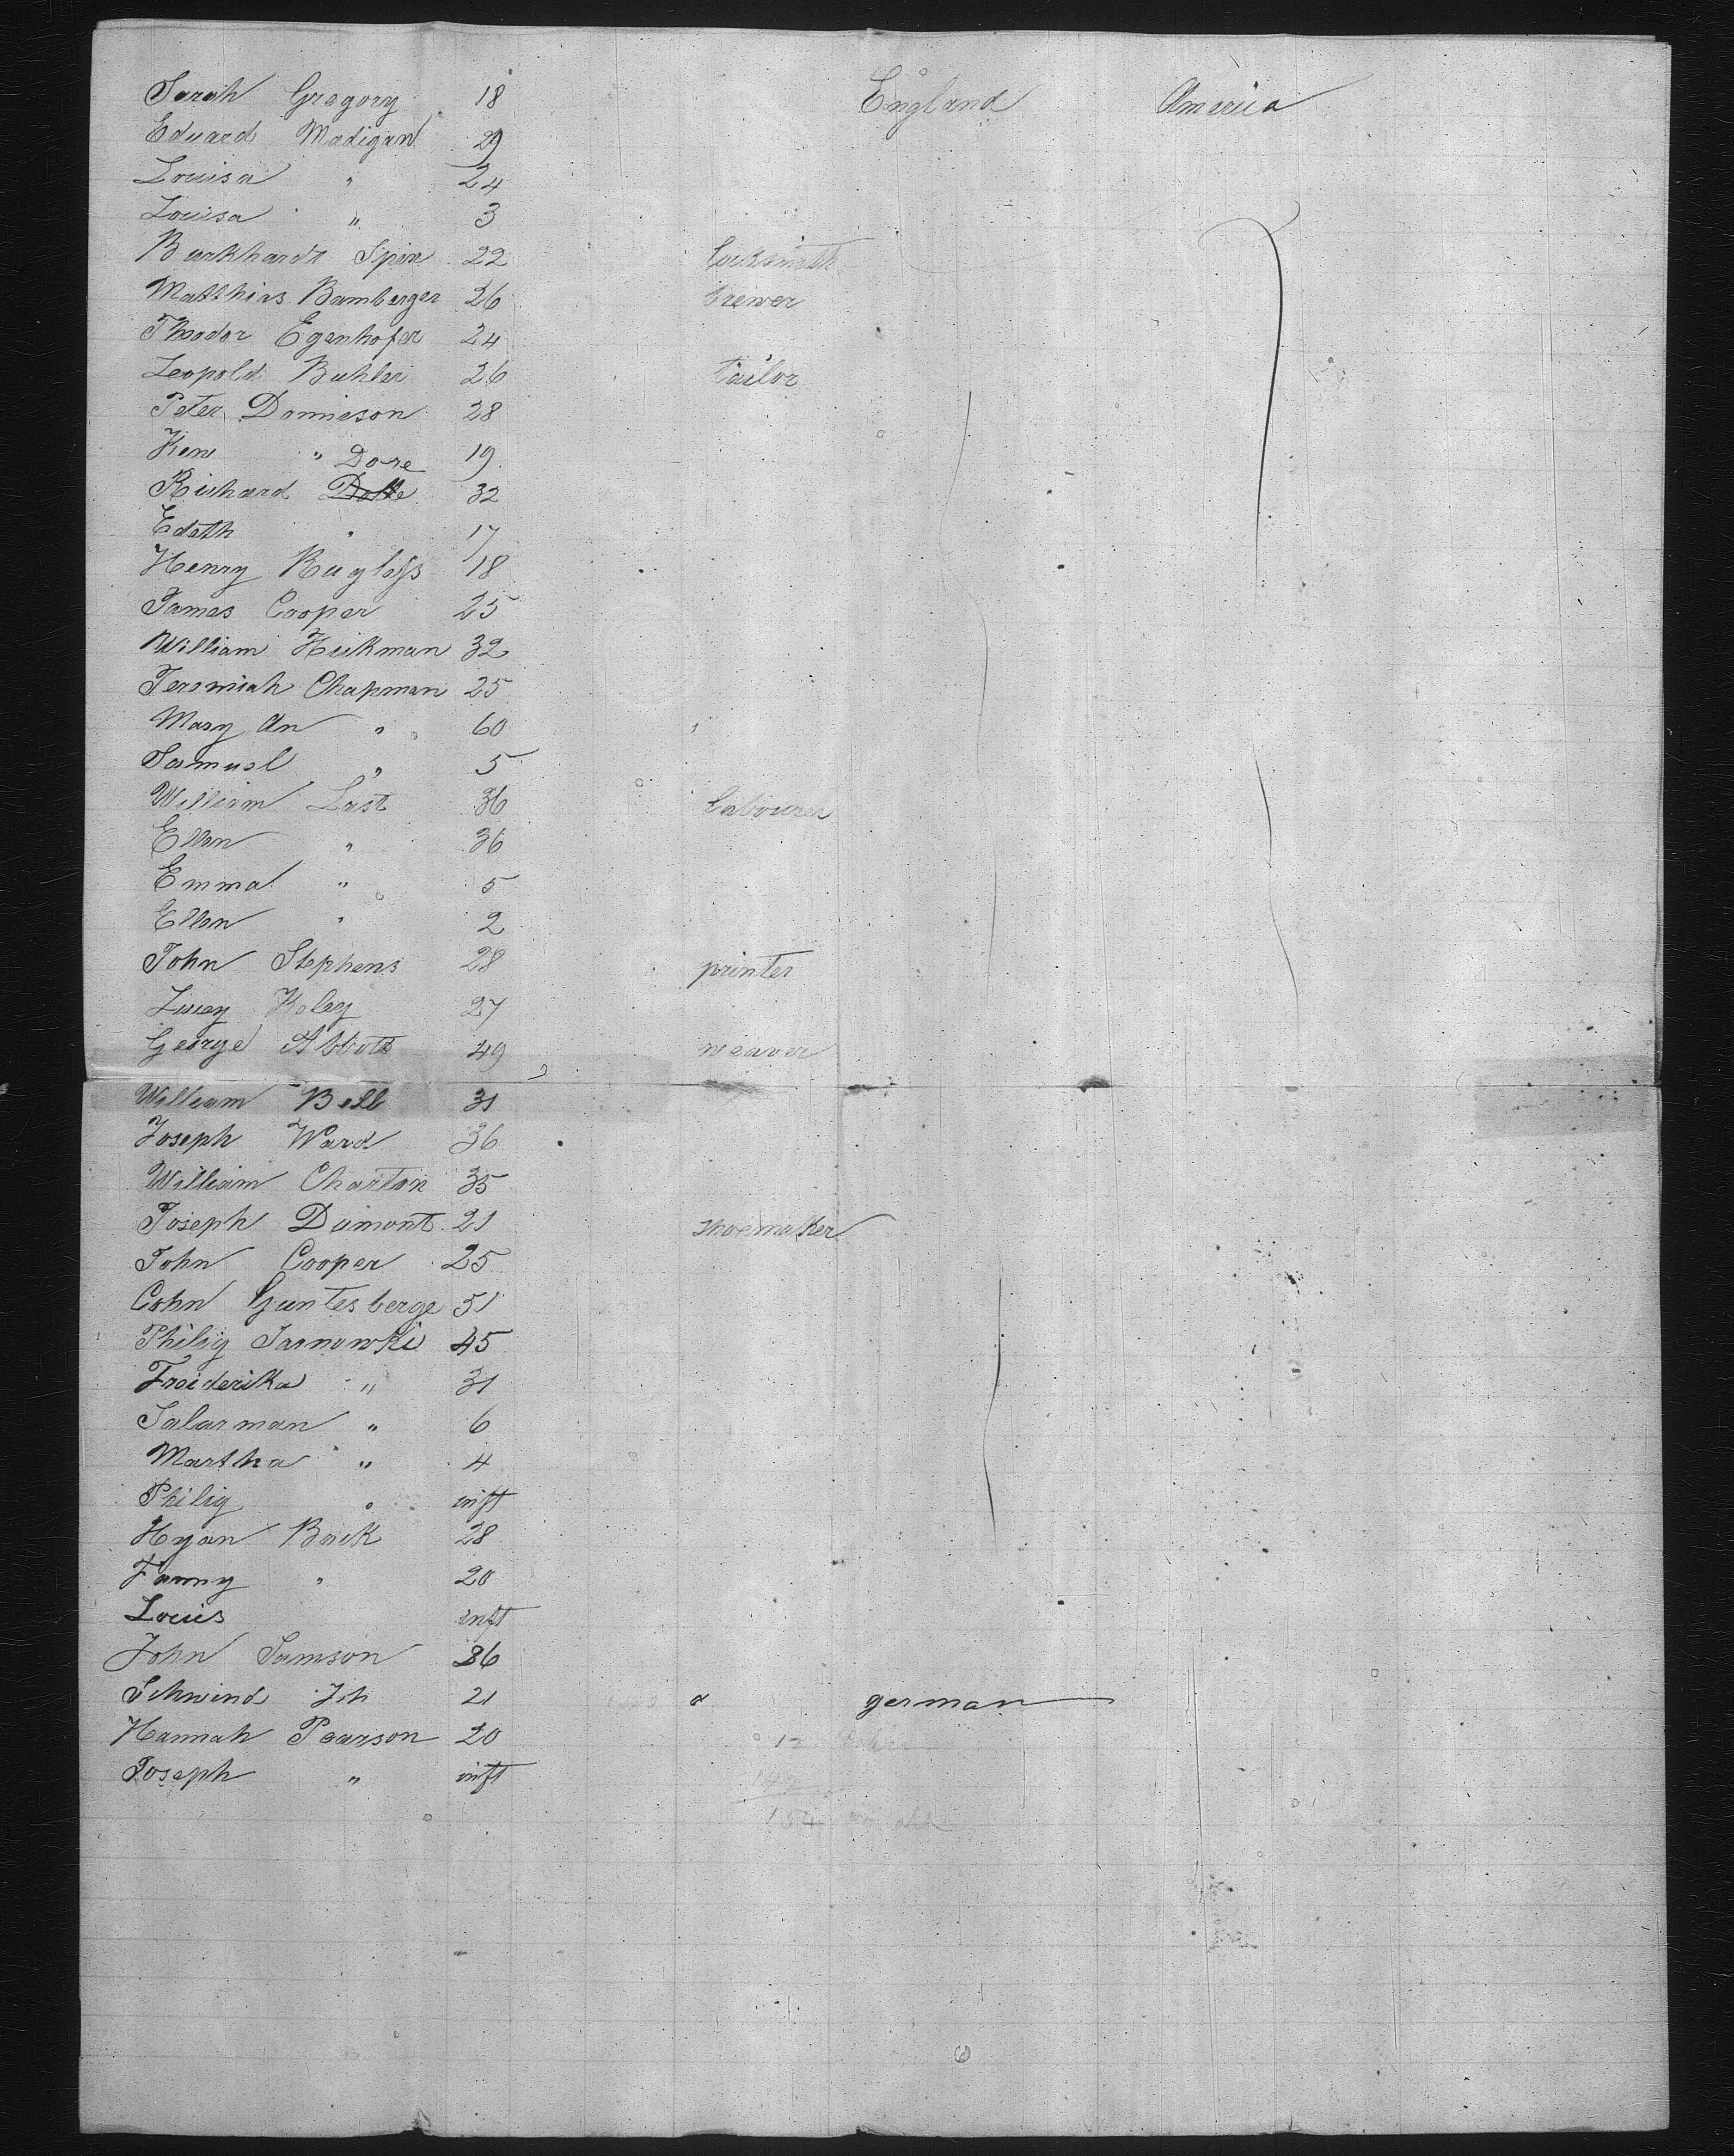 Sarah Gregory 18 England America
Eduard Madigan 29
Louisa " 24
Louisa " 3
Burkhardt Spire 22 locksmith
Matthias Bamberger 26 brewer
Theodor Egenhofer 24
Leopold Buhler 26 tailor
Peter Domieson 28
Hen " 19
Richard Dore 32
Edath " 17
Henry 18
James Cooper 25
William Hickman 32
Jeromiah Chapman 25
Mary An " 60
Samuel " 5
William Last 36 labourer
Ellen " 36
Emma " 5
Ellen " 2
John Stephens 28 printer
Lucy Holey 27
George Abbott 49 weaver
William Bell 31
Joseph Ward 36
William Charton 35
Joseph Dumont 21 shoemaker
John Cooper 25
Cohn Guntesberge 51
Philig Sarnowki 45
Freiderika " 31
Salarman " 6
Martha " 4
Philig " inft
Hyan Back 28
Fanny " 20
Louis inft
John Samson 36
Schwind Joh 21 german
Hannah Pearson 20
Joseph " inft